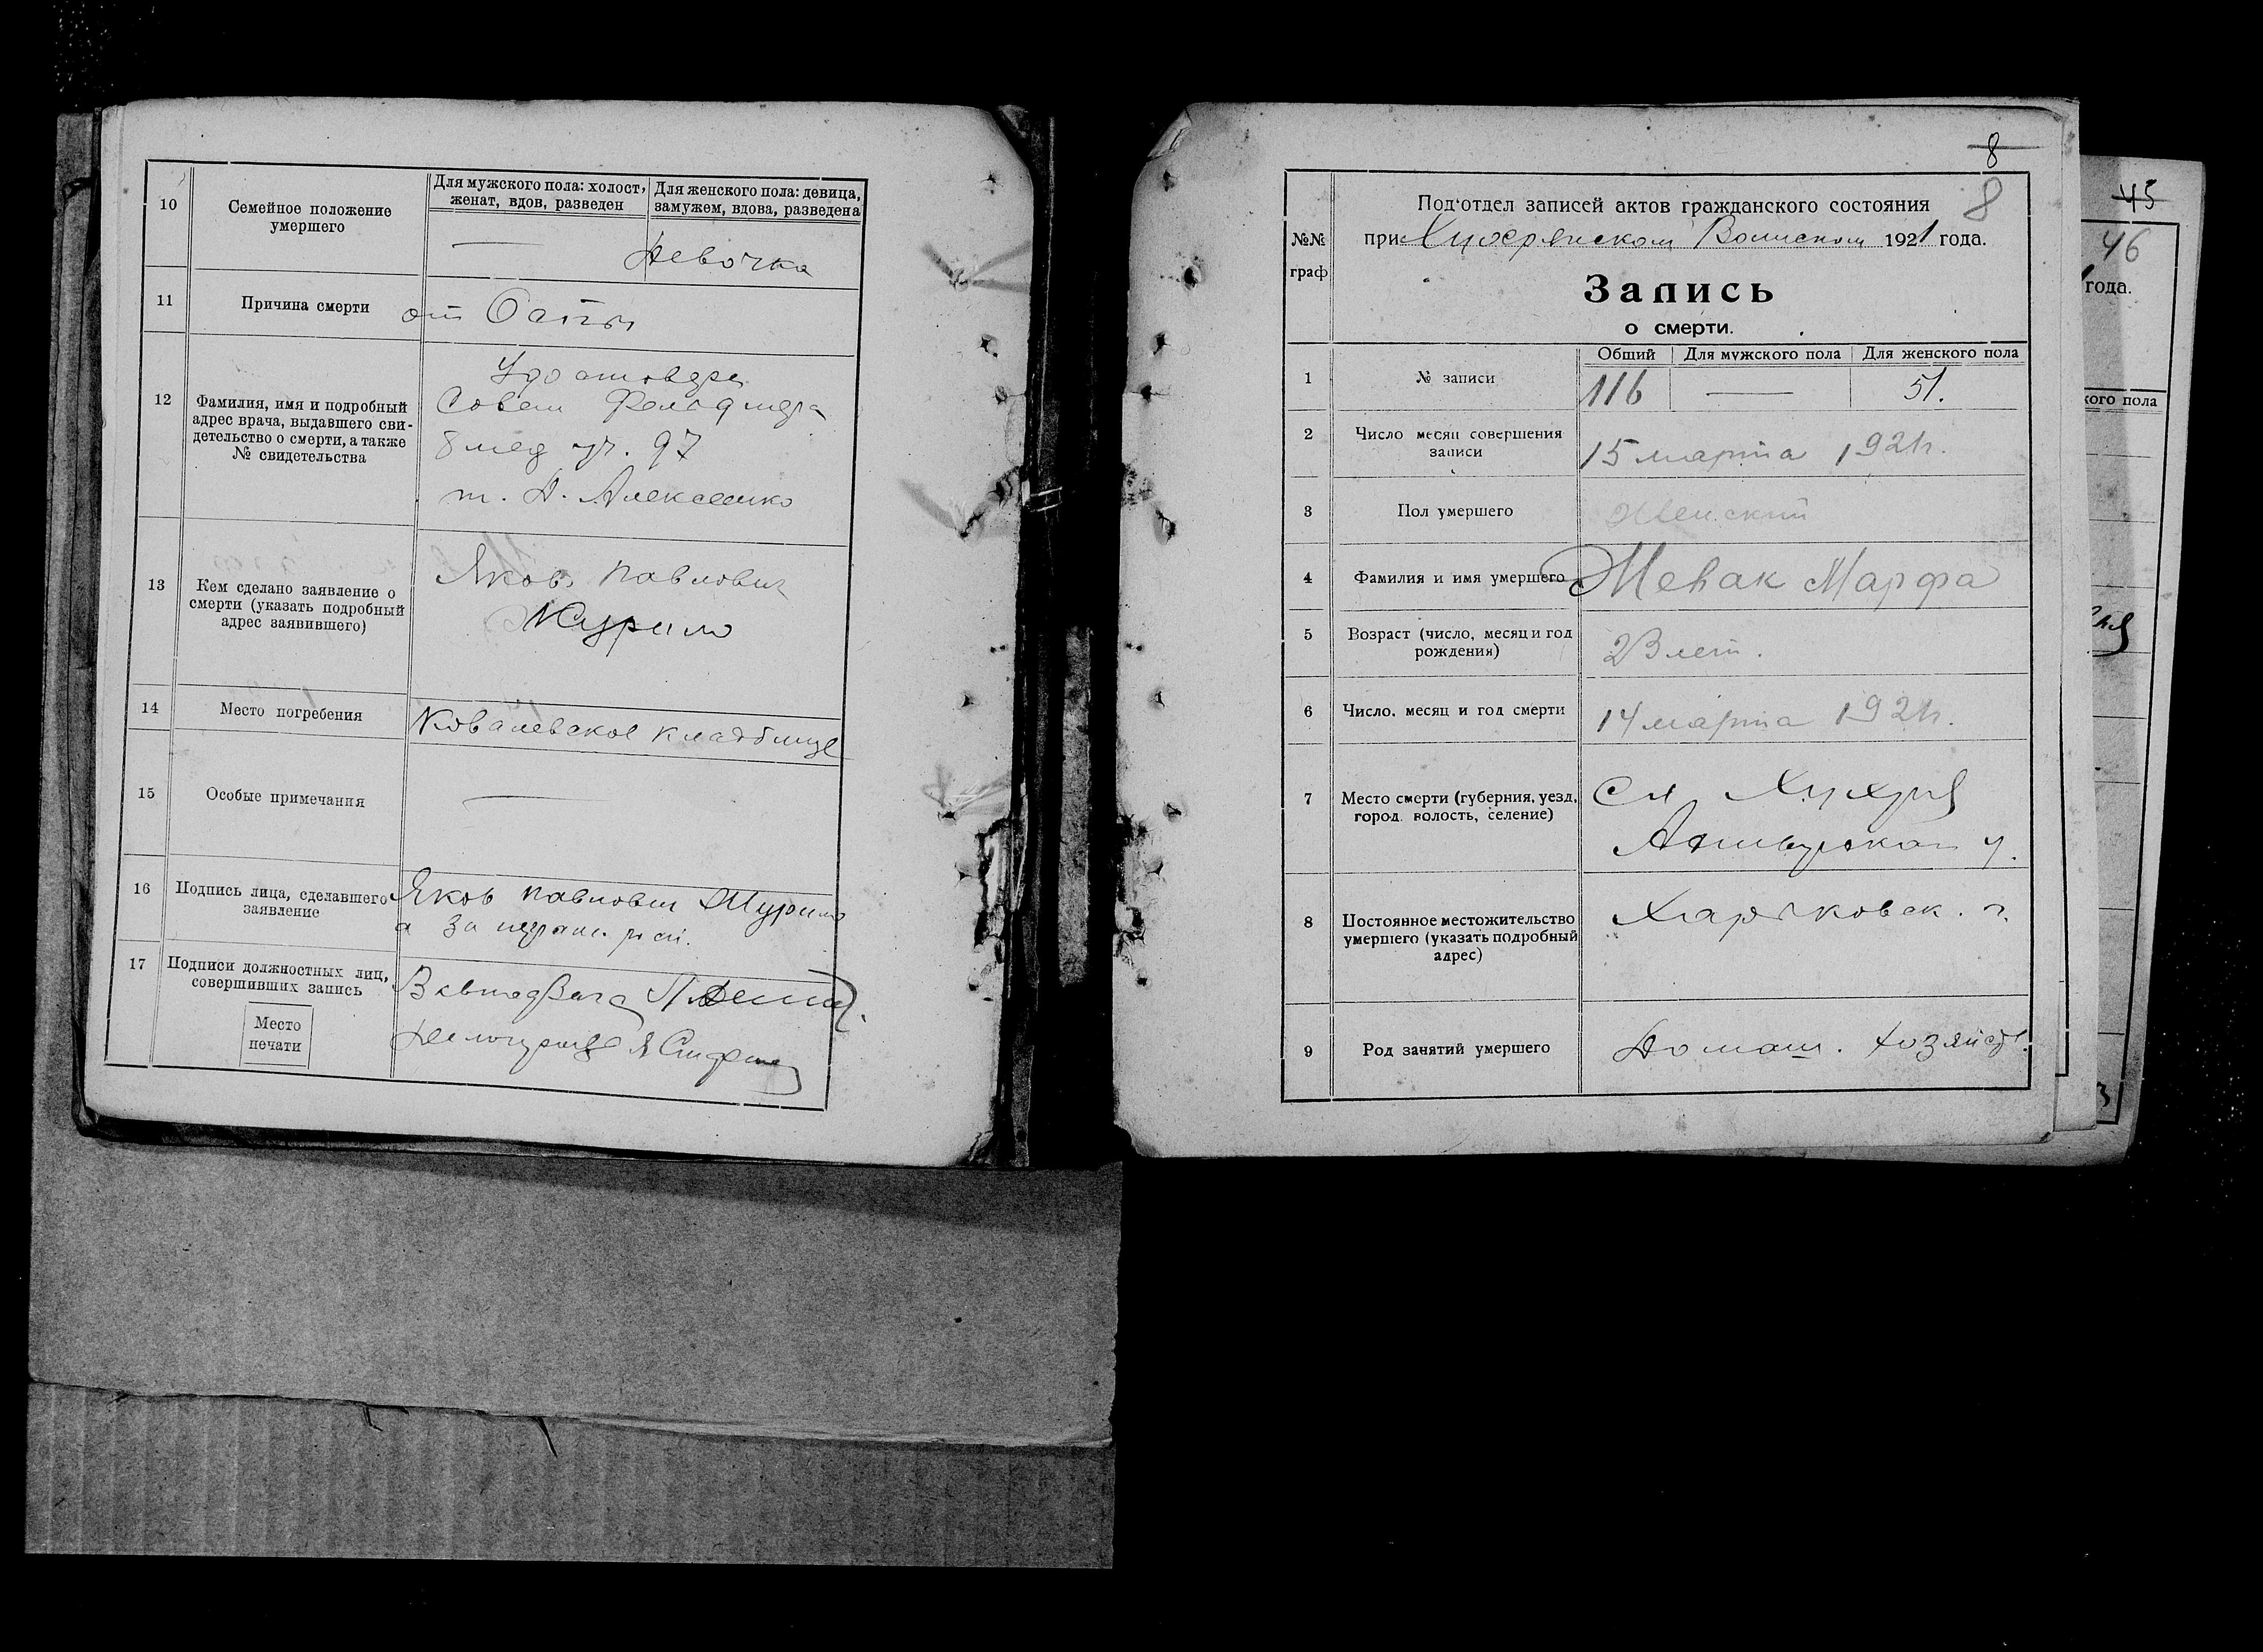 10
Семейное положение
умершего
Для мужского пола: холост,
женат, вдов, разведен
Для женского пола: девица,
замужем, вдова, разведена
Девочка
11
Причина смерти
от Оспы
12
Фамилия, имя и подробный
адрес врача, выдавшего сви-
детельство о смерти, а также
№ свидетельства
Удостовер.
Совет Фельдшера
8 мед уч. 97
т. Д. Алексеенко
13
Кем сделано заявление о
смерти (указать подробный
адрес заявившего)
Яков Павлович
14
Место погребения
Ковалевское кладбище
15
Особые примечания
16
Подпись лица, сделавшего
заявление
Яков Павлович
а за неграм.
17
Подписи должностных лиц,
совершивших запись
Место
печати
8
8
№№
граф
Под'отдел записей актов гражданского состояния
при Хухрянском Волиском 1921 года.
Запись
о смерти.
Общий
Для мужского пола
Для женского пола
1
№ записи
116
51.
2
Число месяц совершения
записи
15 марта 1921г.
3
Пол умершего
Женский
4
Фамилия и имя умершего
Жевак Марфа
5
Возраст (число, месяц и год
рождения)
23 лет.
6
Число, месяц и год смерти
14 марта 1921г.
7
Место смерти (губерния, уезд,
город, волость, селение)
Сл Хухря
Ахтырская у.
8
Постоянное местожительство
умершего (указать подробный
адрес)
Харьковск. г.
9
Род занятий умершего
Домаш. хозяйств.
45
46
года.
кого пола